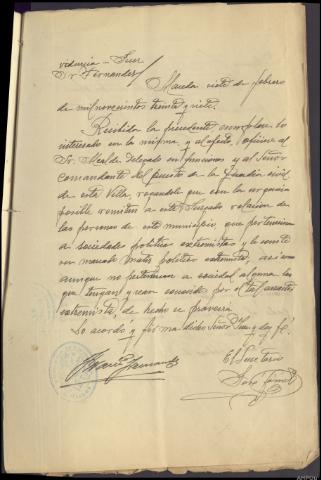 videncia - Juez
Sr Fernandez
Maceda siete de febrero
de mil novecientos treinta y siete.
Recibida la precedente, cumplase lo
interesado en la misma y al efecto, oficiese al
Sr. Alcalde, Delegado en funciones y al Señor
Comandante del puesto de la Guardia civil
de esta Villa, rogandoles que con la urgencia
posible remitan a este Juzgado relacion de
las personas de este municipio que pertenecian
a sociedades politicas extremistas y lo
matiz politico extremista, asi como
aunque no pertenecian a sociedad alguna los
que tengan y sean conocidos por el tal caracter
extremista, de hecho se proveerá
Lo acordó y firma dicho Señor Juez y doy fé.
El Secretario